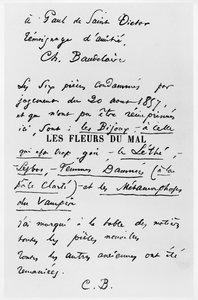 à Paul de Saint Victor
Témoignage d'amitié,
Ch. Baudelaire
Les Six pièces condamnées par
jugement du 20 aout 1857,
et qui n'ont pu être réimprimées
ici, sont : les Bijoux, - à celle
LES FLEURS DU MAL
qui est trop gaie, - le Léthé, -
Lesbos, - Femmes Damnées (à la
pâle clarté) - et les Métamorphoses
du Vampire
j'ai marqué à la table des matières
toutes les pièces nouvelles
toutes les autres anciennes ont été
remaniées.
C. B.